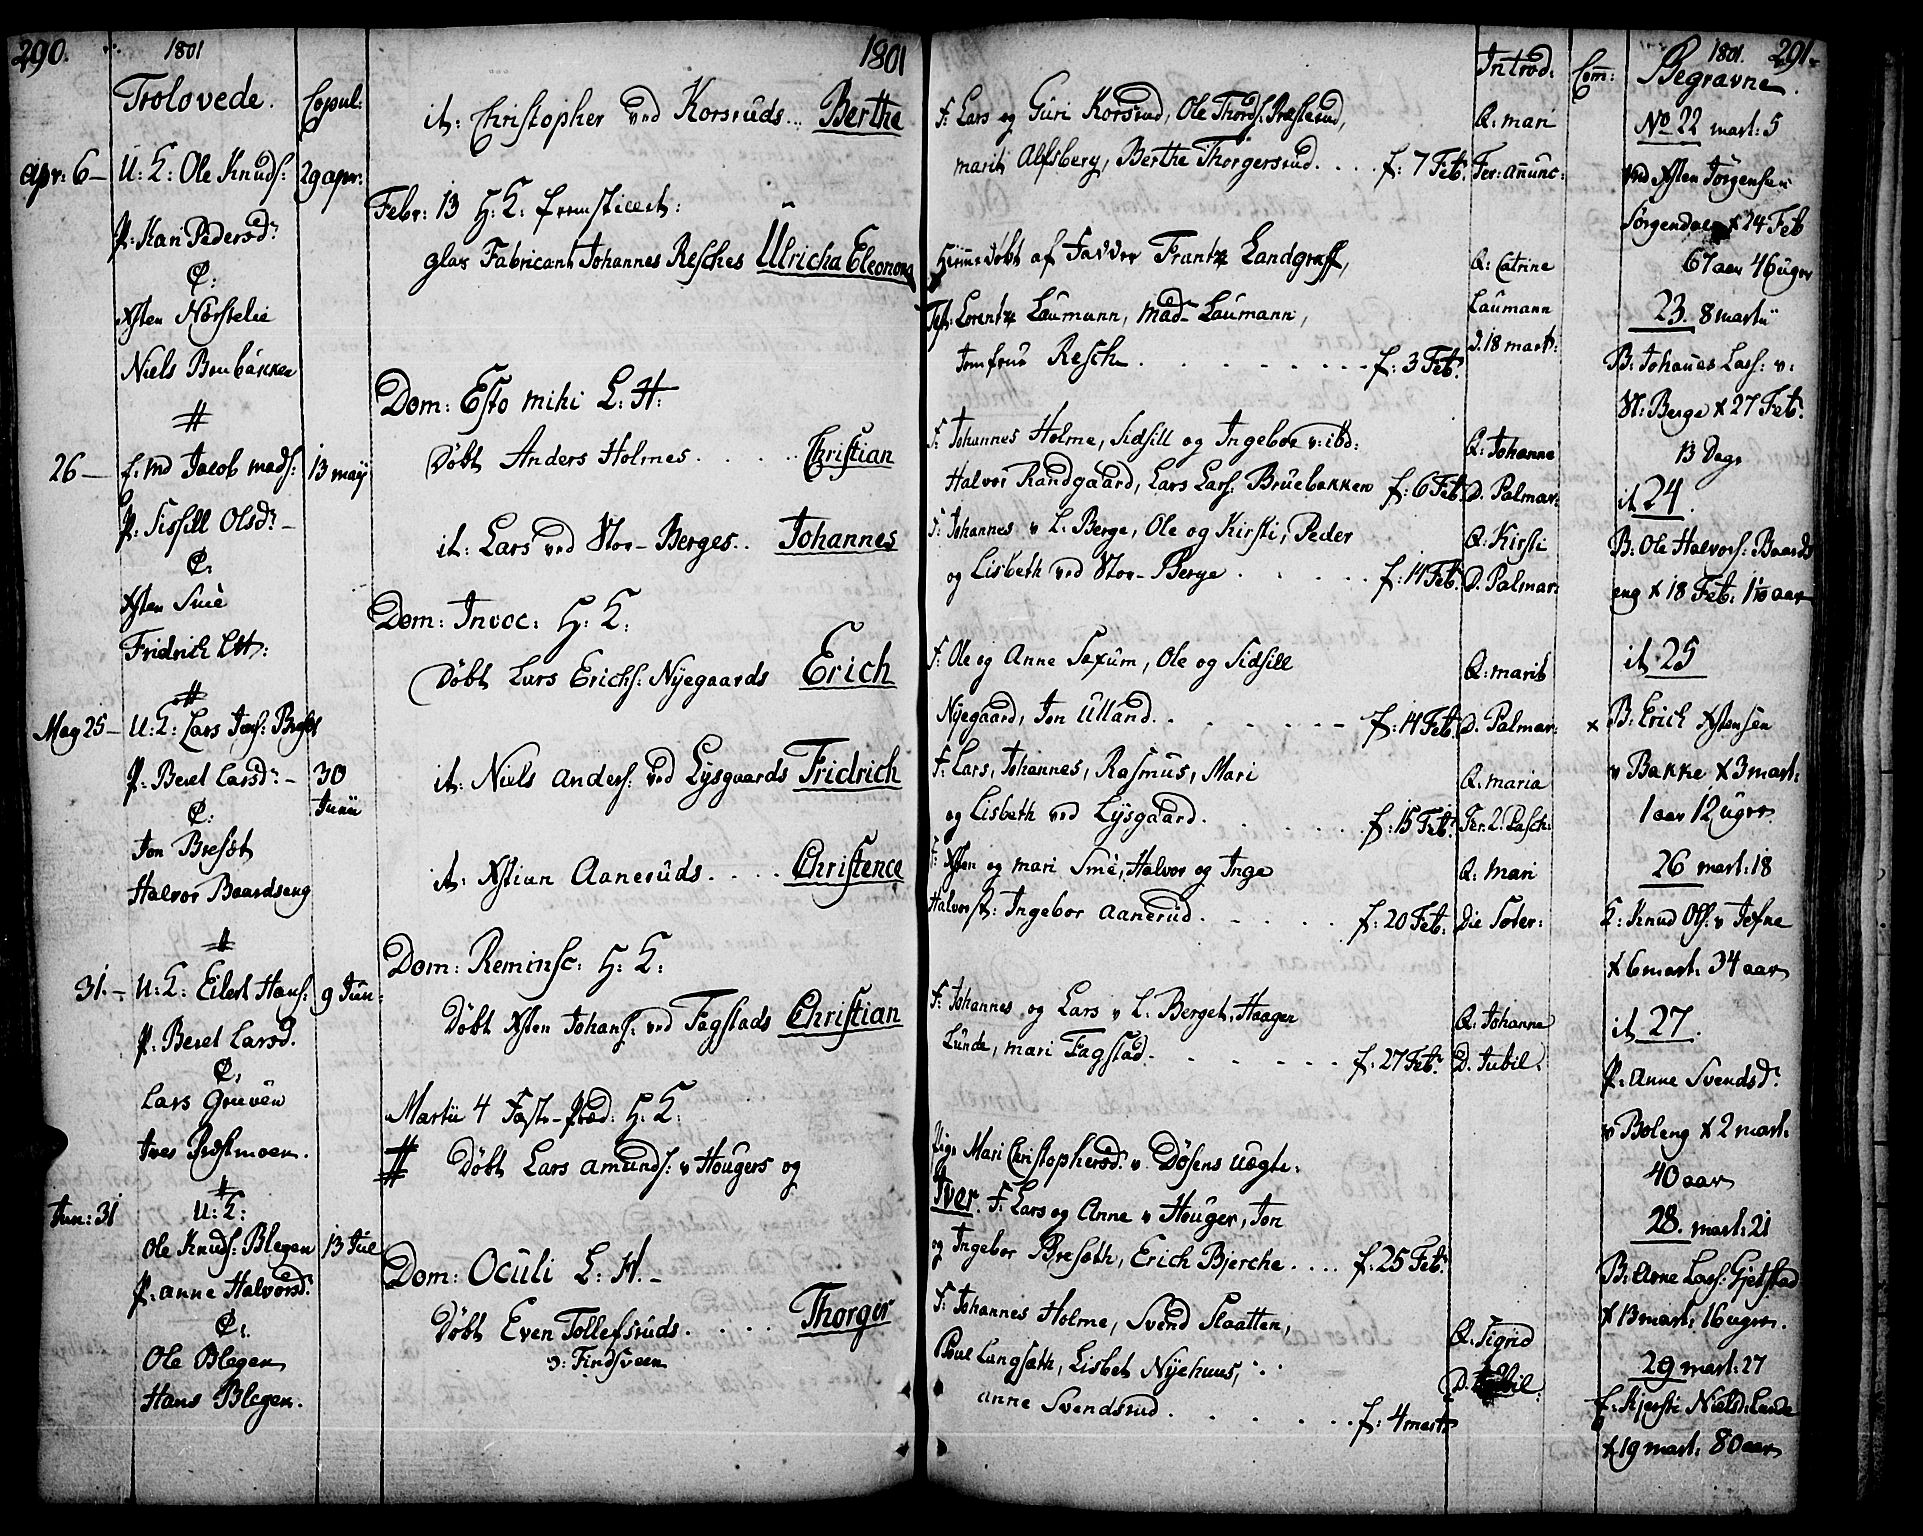 290.
1801
Trolovede.
Copul:
Apr: 6 — U: K: Ole Knuds: 29 apr:
P: Kari Pedersd:
C:
Xsten Norstelie
Niels Bruebakken
26 — E: md Jacob mads: 13 maij
P: Sissill Olsd: —
C:
Xsten Smè
Fridrich Ltt:
May 25 — U: K: Lars Jons: Breset
P: Beret Larsd: — 30 Junii
C:
Jon Bresæt
Halvor Baardseng
31. — U: K: Eilert Hans: 9 Jun:
P: Beret Larsd.
C:
Lars Gruven
Iver Præstmoen.
Jun: 31
U: K:
Ole Knuds: Blegen 13 Jul
P: Anne Halvorsd:
C:
Ole Blegen
Hans Blegen.
1801
it: Christopher ved Korsruds... Berthe
Febr: 13 H: K:
Glas Fabricant Johannes Resches Ulricha Eleonora
Dom: Esto mihi L. H:
Døbt Anders Holmes..... Christian
it: Lars ved Stor-Berges.. Johannes
Dom: Invoc: H: K:
Døbt Lars Erichs: Nyegaards Erich
it: Niels Anders: ved Lysgaards Fridrich
it: Xstian Aaneruds.... Christence
Dom: Reminsc: H: K:
Døbt Xsten Johans: ved Fagstads Christian
Martii 4 Faste-Præd: H: K:
# Døbt Lars Amunds: v Hougers og
Dom: Oculi L. H. —
Døbt Even Tollefsruds..... Thorger
ɔ: Findsveen
F: Lars og Guri Korsrud, Ole Thords: Præsterud,
marit Alfsberg, Berthe Thorgersrud.... f: 7 Feb:
Hiemmedøbt af Fadder Frantz Landgraff,
Test: Lorentz Laumann, Mad- Laumann,
Jomfrue Resch......... f: 3 Feb:
F: Johannes Holme, Sidsill og Ingebor v: ibd:
Halvor Randgaard, Lars Lars: Bruebakken f: 6 Feb:
F: Johannes v L. Berge, Ole og Kirsti, Peder
og Lisbeth ved Stor-Berge..... f: 14 Feb:
F: Ole og Anne Saxum, Ole og Sidsill
Nyegaard, Jon Ulland....... f: 14 Feb:
F: Lars, Johannes, Rasmus, Mari
og Lisbeth ved Lysgaard...... f: 15 Feb:
F: Xsten og mari Smè, Halvor og Inge
Halvorst: Ingebor Aanerud...... f: 20 Feb:
F: Johannes og Lars v L. Berget, Haagen
Lunde, mari Fagstad....... f: 27 Feb:
Pige Mari Christophersd: v. Døsens uægte:
Iver. F: Lars og Anne v Houger, Jon
og Ingebor Bresæth, Erich Bjerche.... f: 25 Feb:
F: Johannes Holme, Svend Slaatten,
Poul Langsæth, Lisbet Nyehuus,
Anne Svendsrud...... f: 4 mart:
Introd:
Q: mari
Fer: anunc:
Q: Catrine
Laumann
D. 18 mart:
Q: Johanne
D. Palmar:
Q: Kirsti
D: Palmar:
Q: marit
D. Palmar:
Q: maria
Fer. 2. Pasch:
Q: Mari
Die Soter:
Q: Johanne
D. Jubil:
Q: Sigrid
D. Jubil:
Com:
1801. 291.
Begravne.
No 22 mart: 5
Md Xsten Jørgensen
Sørgendale X 24 Feb
67 aar 46 uger
23. 8 martii
B: Johanes Lars: v:
St: Berge X 27 Feb:
13 Dage
it 24.
B: Ole Halvors: Baards
eng X 18 Feb: 1 1/10 aar
it 25
x B: Erich Xstensen
v Bakke X 3 mart:
1 aar 12 uger
26 mart: 18
K: Knud Ols: v Jefne
X 6 mart: 34 aar
it 27.
P: Anne Svendsd:
v Boleng X 2 mart:
40 aar
28. mart: 21
B: Arne Lars: Gjetstad
X 13 mart: 16 uger.
29 mart: 27
E: Kjersti Nielsd: Lunde
X 19 mart: 80 aar